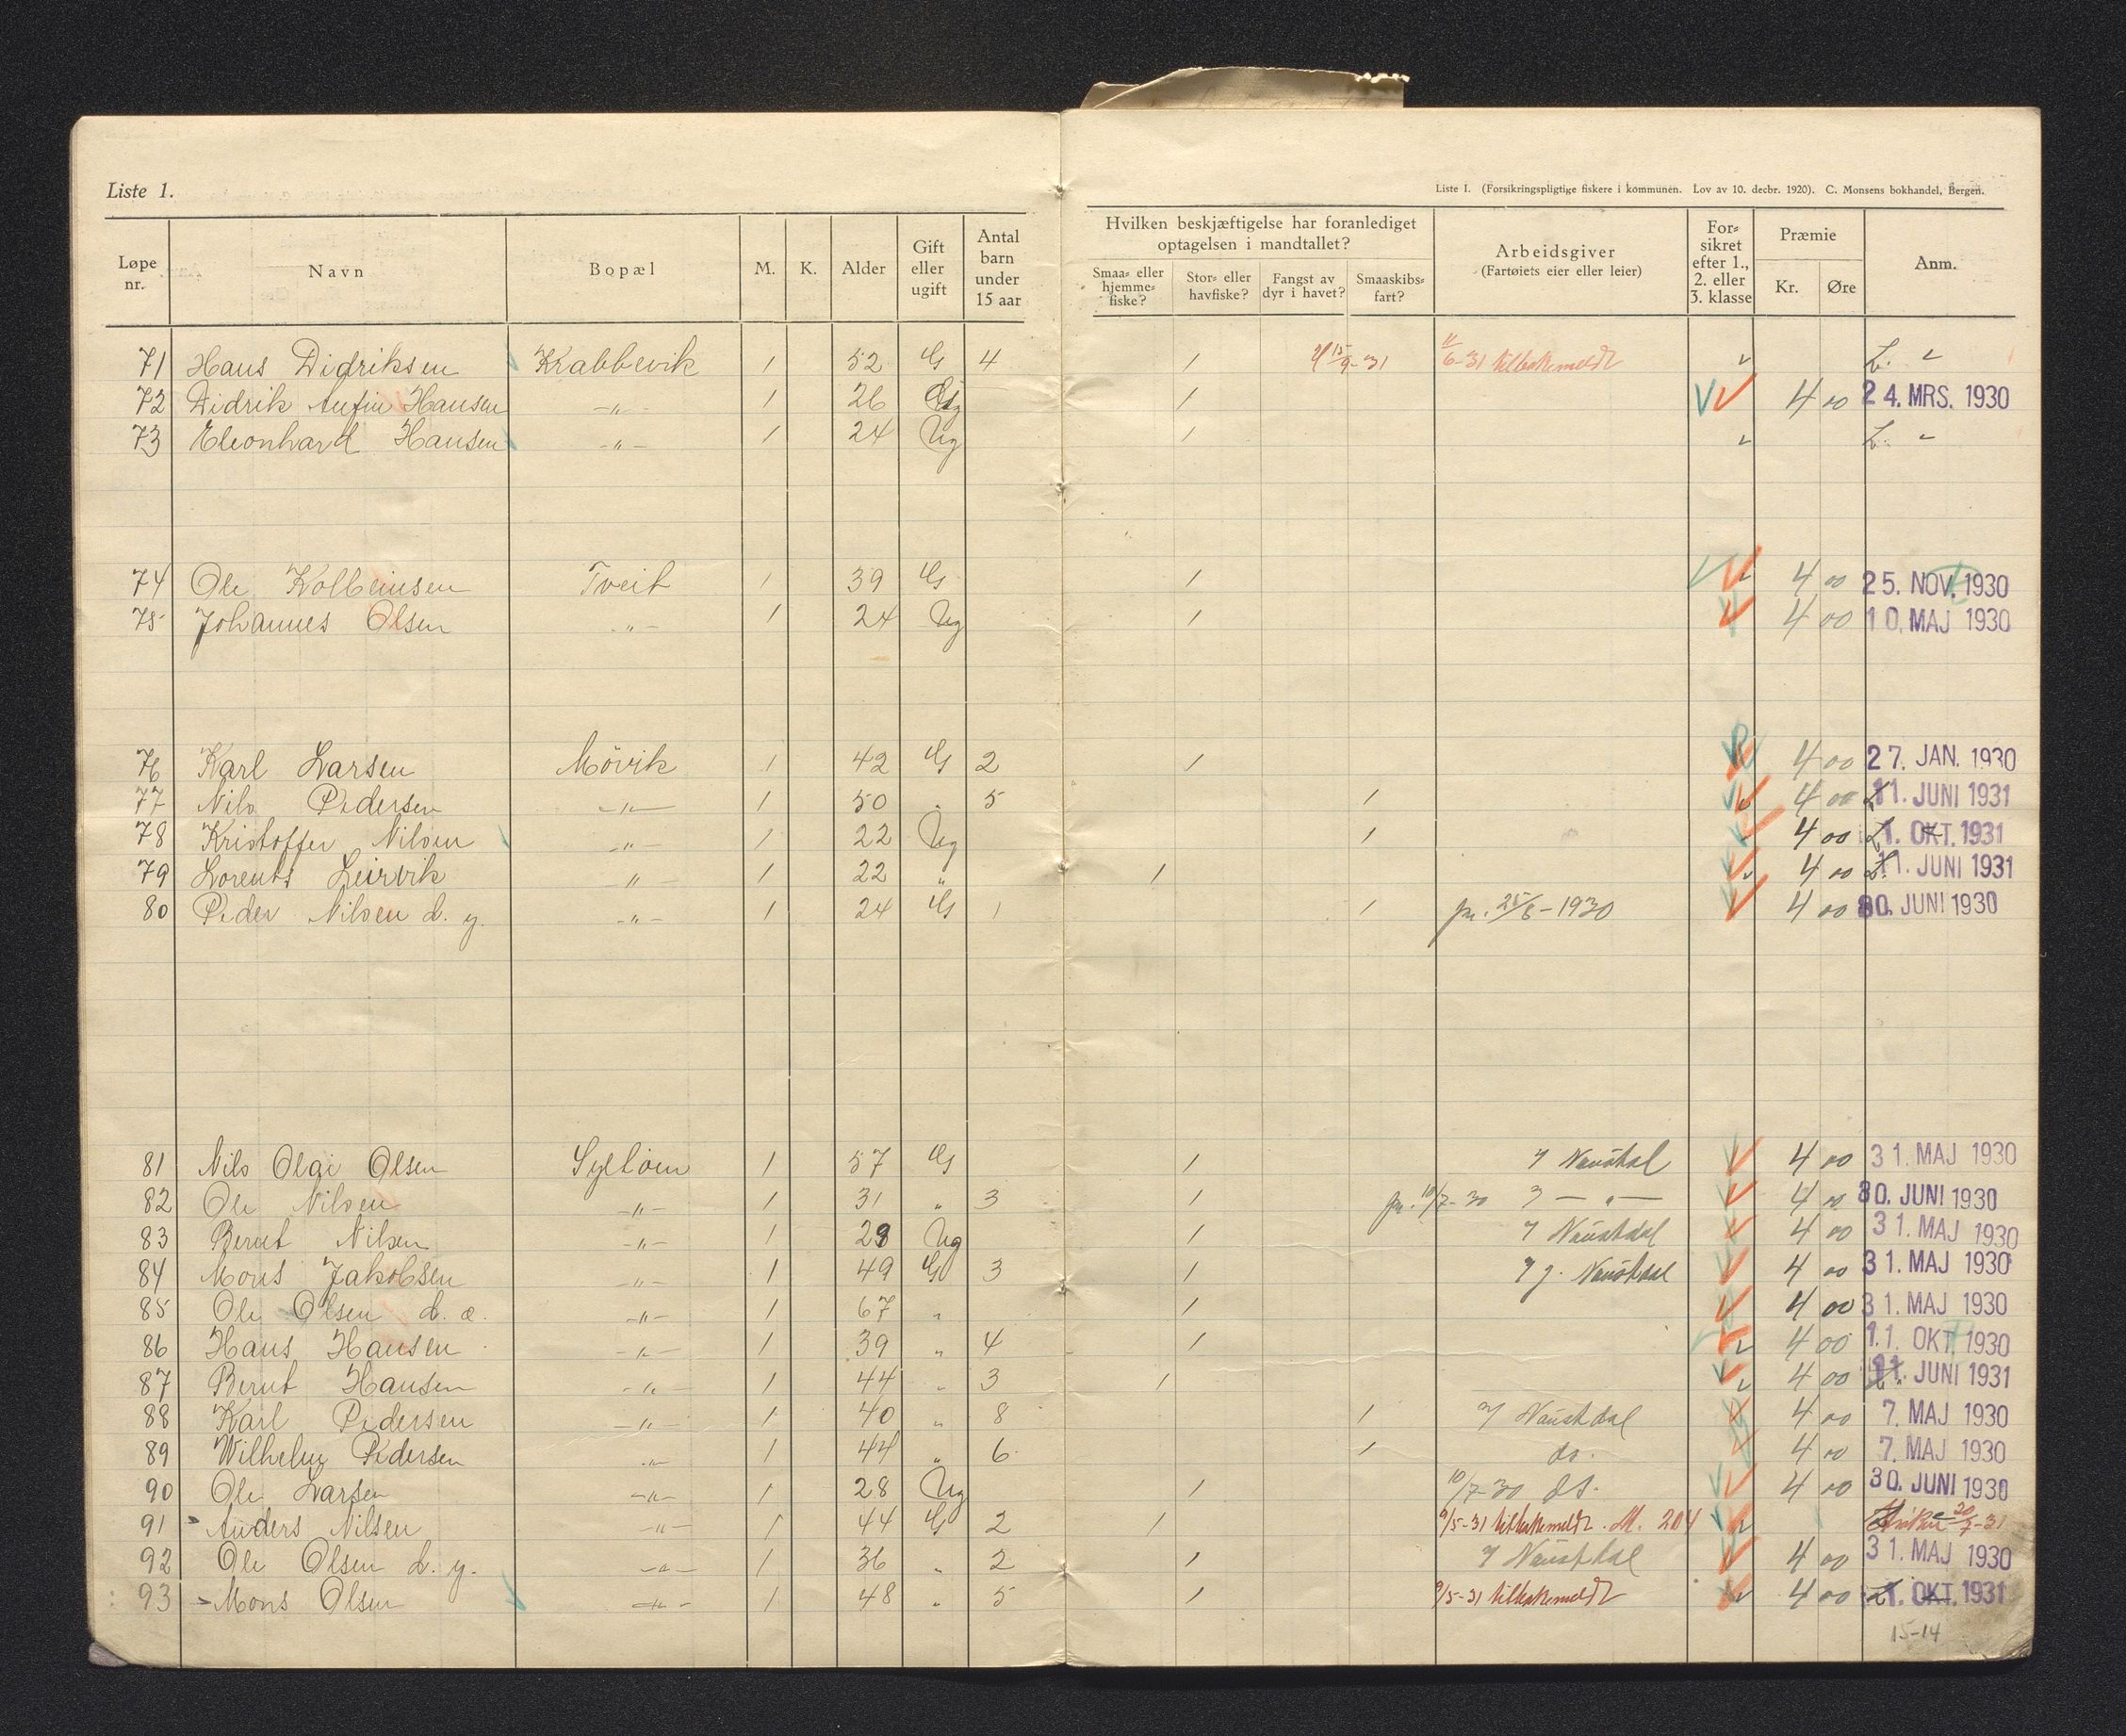 Liste 1.
Liste I. (Forsikringspligtige fiskere i kommunen. Lov av 10. decbr. 1920). C. Monsens bokhandel, Bergen.
Løpe nr. Navn Bopæl M. K. Alder Gift eller ugift Antal barn under 15 aar Hvilken beskjæftigelse har foranlediget optagelsen i mandtallet? Smaa- eller hjemme-fiske? Stor- eller havfiske? Fangst av dyr i havet? Smaaskibs-fart? Arbeidsgiver (Fartøiets eier eller leier) For-sikret efter 1., 2. eller 3. klasse Præmie Kr. Øre Anm.
71 Hans Didriksen Krabbevik 1 52 G 4 1 15/9-31 11/6-31 tilbakemeldt L.
72 Didrik Anfin Hansen -"- 1 26 1 4 00 24. MRS. 1930
73 Eleonhard Hansen -"- 1 24 Ug 1 L.
74 Ole Kolbeinsen Tveit 1 39 G 1 4 00 25. NOV. 1930
75 Johannes Olsen -"- 1 24 Ug 1 4 00 10. MAJ 1930
76 Karl Larsen Mövik 1 42 G 2 1 4 00 27. JAN. 1930
77 Nils Pedersen -"- 1 50 " 5 1 4 00 11. JUNI 1931
78 Kristoffer Nilsen -"- 1 22 Ug 1 4 00 1. OKT. 1931
79 Lorents Leirvik -"- 1 22 " 1 4 00 11. JUNI 1931
80 Peder Nilsen d. y. -"- 1 24 G 1 1 pr. 25/6-1930 4 00 30. JUNI 1930
81 Nils Olai Olsen Syltöen 1 57 G 1 Naustdal 4 00 31. MAJ 1930
82 Ole Nilsen -"- 1 31 " 3 1 pr. 10/7-30 -"- 4 00 30. JUNI 1930
83 Bernt Nilsen -"- 1 29 Ug 1 Naustdal 4 00 31. MAJ 1930
84 Mons Jakobsen -"- 1 49 G 3 1 Naustdal 4 00 31. MAJ 1930
85 Ole Olsen d. e. -"- 1 67 " 1 4 00 31. MAJ 1930
86 Hans Hansen -"- 1 39 " 4 1 4 00 11. OKT 1930
87 Bernt Hansen -"- 1 44 " 3 1 4 00 11. JUNI 1931
88 Karl Pedersen -"- 1 40 " 8 1 Naustdal 4 00 7. MAJ 1930
89 Wilhelm Pedersen -"- 1 44 " 6 1 do. 4 00 7. MAJ 1930
90 Ole Larsen -"- 1 28 Ug 1 10/7-30 ds. 4 00 30. JUNI 1930
91 Anders Nilsen -"- 1 44 G 2 1 9/5-31 tilbakemeldt. M. 204 20/7-31
92 Ole Olsen d. y. -"- 1 36 " 2 1 Naustdal 4 00 31. MAJ 1930
93 Mons Olsen -"- 1 48 " 5 1 9/5-31 tilbakemeldt 4 00 1. OKT. 1931
15-14